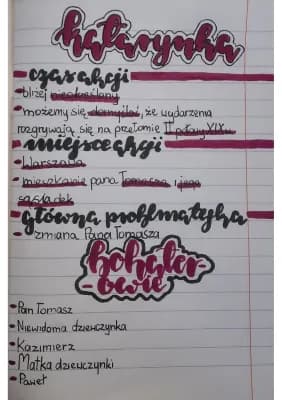 katarynka
czas akcji
• bliżej nieokreślony
• możemy się domyślić, że wydarzenia
rozgrywają się na przełomie II połowy XIXw.
miejsce akcji
• Warszawa
• mieszkanie pana Tomasza i jego
sąsiadek
główna problematyka
• zmiana Pana Tomasza
bohater-
owie
• Pan Tomasz
• Niewidoma dziewczynka
• Kazimierz
• Matka dziewczynki
• Paweł